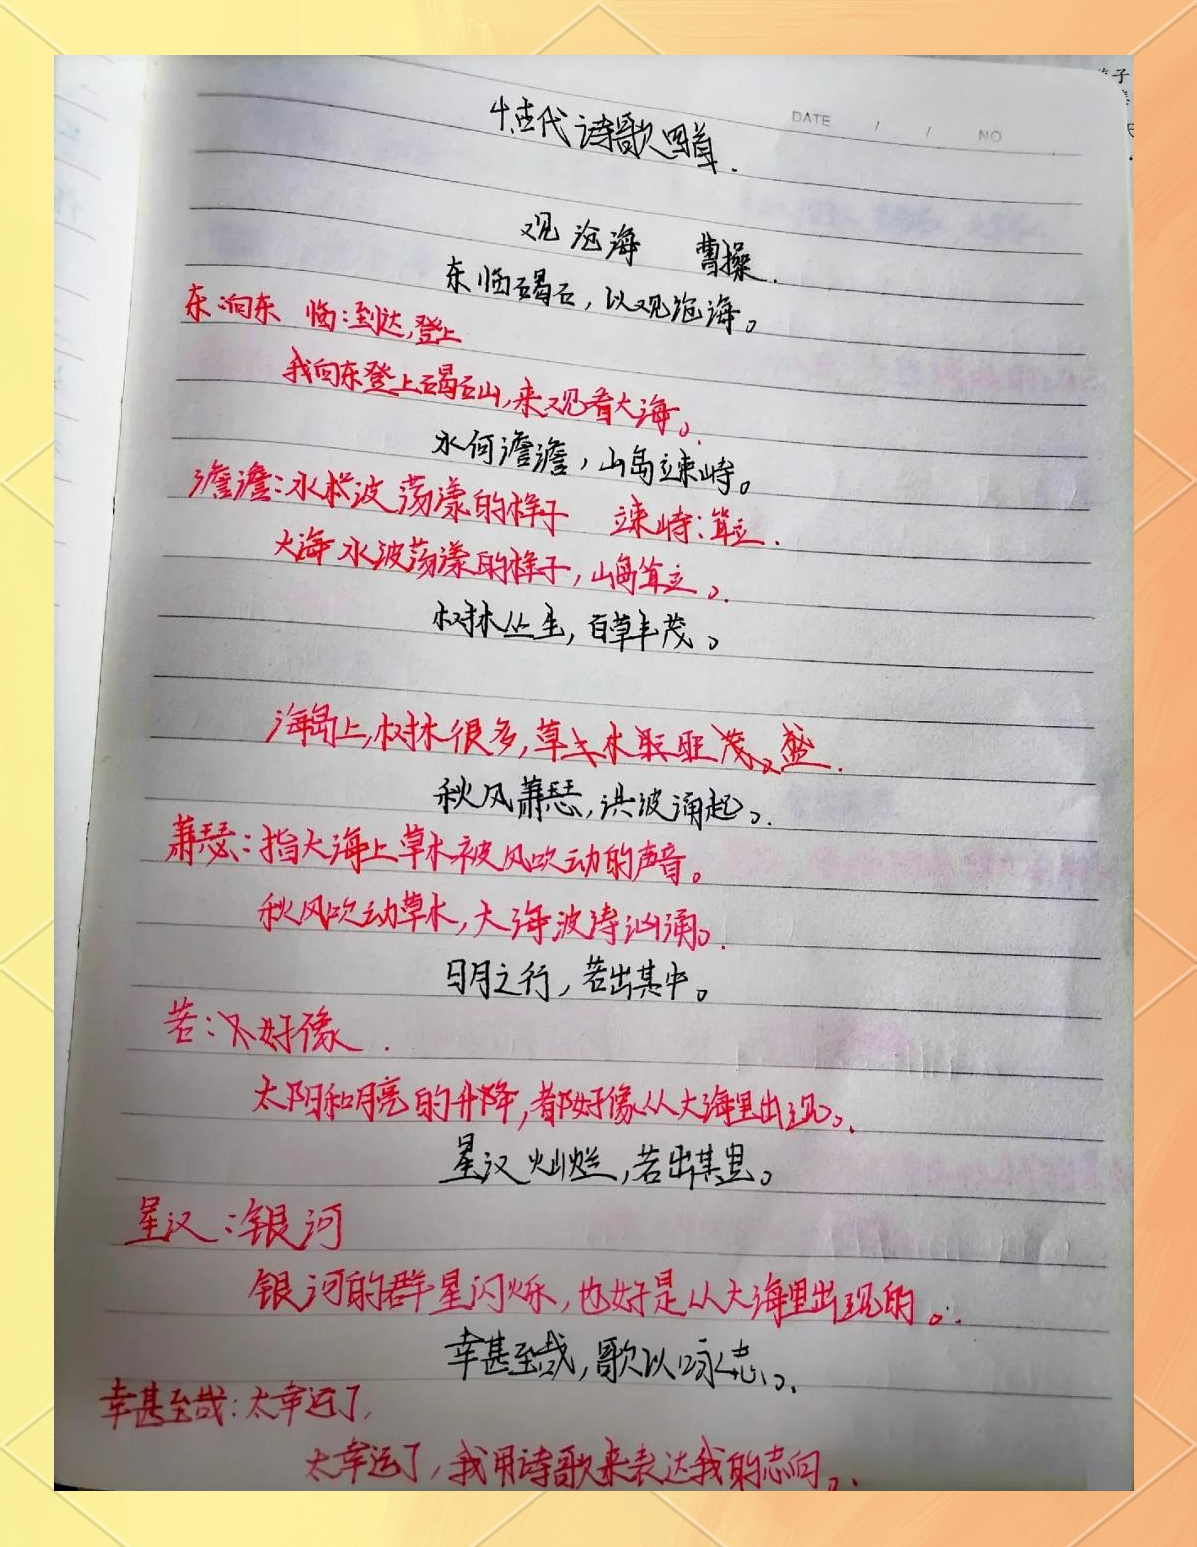 4.古代诗歌四首.
DATE / / NO
观沧海 曹操.
东临碣石，以观沧海。
东:向东 临:到达,登上
我向东登上碣石山,来观看大海。
水何澹澹，山岛竦峙。
澹澹:水波荡漾的样子 竦峙:耸立.
大海水波荡漾的样子，山岛耸立。
树木丛生，百草丰茂。
海岛上,树木很多,草木联旺茂盛.
秋风萧瑟,洪波涌起。
萧瑟:指大海上草木被风吹动的声音。
秋风吹动草木,大海波涛汹涌。
日月之行，若出其中。
若:好像.
太阳和月亮的升降,都好像从大海里出现。
星汉灿烂,若出其里。
星汉:银河
银河的群星闪烁,也好是从大海里出现的。
幸甚至哉,歌以咏志。
幸甚至哉:太幸运了,
太幸运了,我用诗歌来表达我的志向。